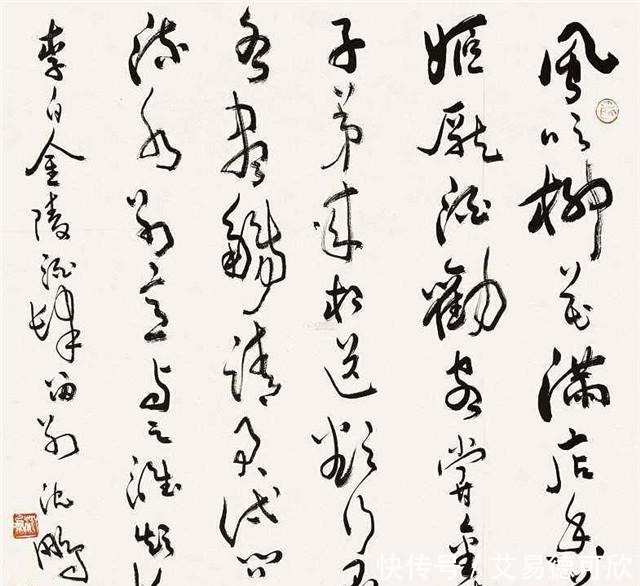 風吹柳花滿店香
姬壓酒勸客嘗金
子弟來相送欲行不
各盡觴請君試問
流水別意與之誰短
李白金陵酒肆留別 沈鵬
快传号 / 艾易德可欣